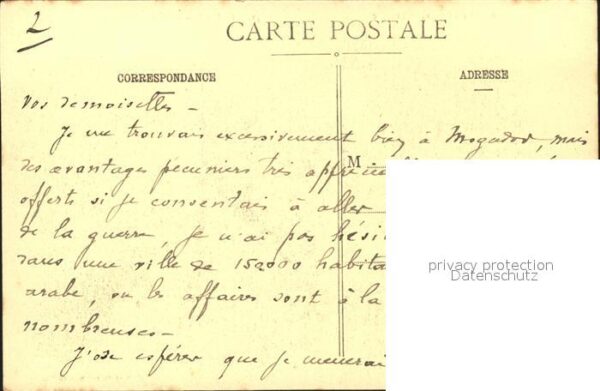 2
CARTE POSTALE
CORRESPONDANCE
ADRESSE
vos demoiselles —
Je me trouvais excessivement bien à Mogador, mais
M
des avantages pecuniers très appréci
offerts si je consentais à aller
de la guerre, je n'ai pas hési
dans une ville de 150000 habita
arabe, où les affaires sont à la
nombreuses —
J'ose espérer que je menerai
privacy protection
Datenschutz